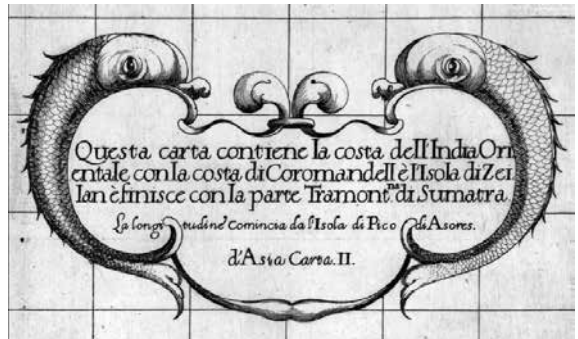 Questa carta contiene la costa dell'India Ori
entale con la costa di Coromandell è l'Isola di Zei
lan è finisce con la parte Tramont.na di Sumatra.
La longitudine comincia da l'Isola di Pico di Asores.
d'Asia Carta. II.